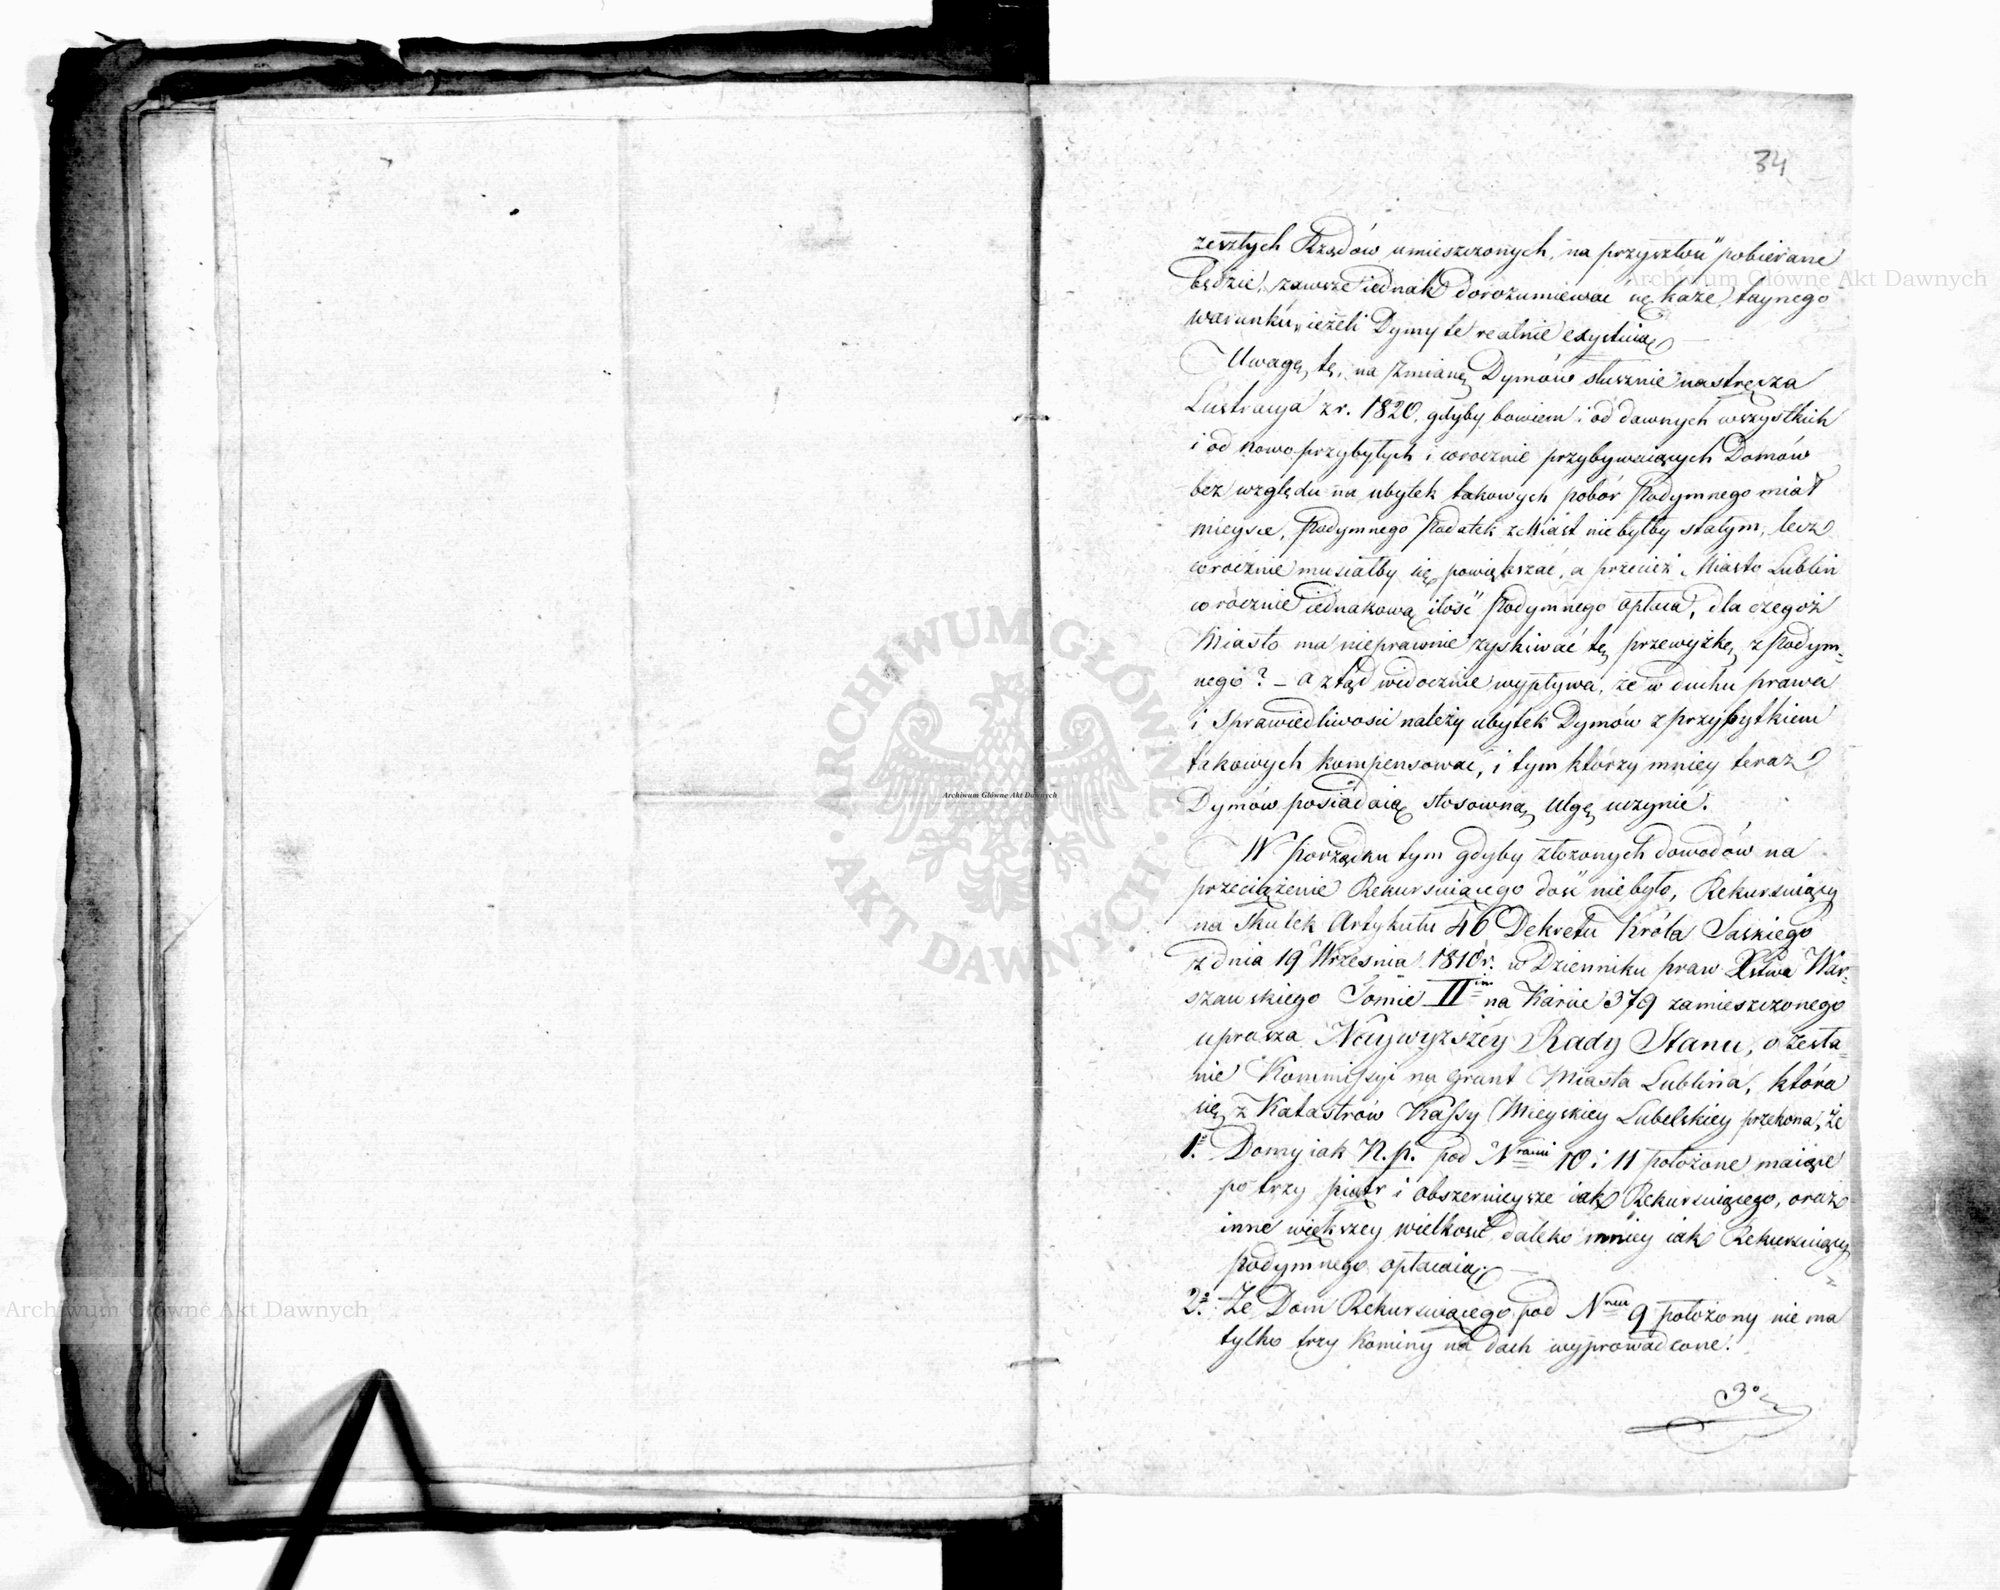 34
zeszłych Rządów umieszczonych, na przyszłość pobierane
będzie, zawsze iednak dorozumiewać się każe, taynego
warunku, ieżeli Dymy te realnie exystuią
Uwagę tę, na Zmianę Dymów słusznie nastręcza
Lustracya z r. 1820, gdyby bowiem i od dawnych wszystkich
i od nowoprzybyłych i corocznie przybywaiących Domów
bez względu na ubytek takowych pobór Podymnego miał
mieysce, Podymnego Podatek z Miast nie byłby stałym, lecz
corocznie musiałby się powiększać, a przecież Miasto Lublin
corocznie iednakową ilość Podymnego opłaca, dla czegoż
Miasto ma nieprawnie zyskiwać tę przewyżkę z Podym=
nego? – a ztąd widocznie wypływa, że w duchu prawa
i Sprawiedliwości należy ubytek Dymów z przybytkiem
takowych kompensować, i tym którzy mniey teraz
Dymów posiadaią stosowną Ulgę uczynić.
W Porządku tym gdyby złożonych dowodów na
przeciążenie Rekursuiącego dość nie było, Rekursuiący
na Skutek Artykułu 46 Dekretu Króla Saskiego
z dnia 19 Września 1810 r. w Dzienniku praw Xstwa War=
szawskiego Tomie II im na Karcie 379 zamieszczonego
uprasza Naywyższéy Rady Stanu, o zesła=
nie Kommissyi na grunt Miasta Lublina, która
się z Katastrów Kassy Mieyskiey Lubelskiey przekona, że
1º. Domy iak N. p. pod Nrami 10 i 11 położone maiące
po trzy piątr i obszernieysze iak Rekursuiącego, oraz
inne większey wielkości daleko mniey iak Rekursuiący
Podymnego opłacaią.
2º. Że Dom Rekursuiącego pod Nrem 9 położony nie ma
tylko trzy Kominy na dach wyprowadzone.
3º
Archiwum Główne Akt Dawnych
Archiwum Główne Akt Dawnych
Archiwum Główne Akt Dawnych
ARCHIWUM GŁÓWNE AKT DAWNYCH